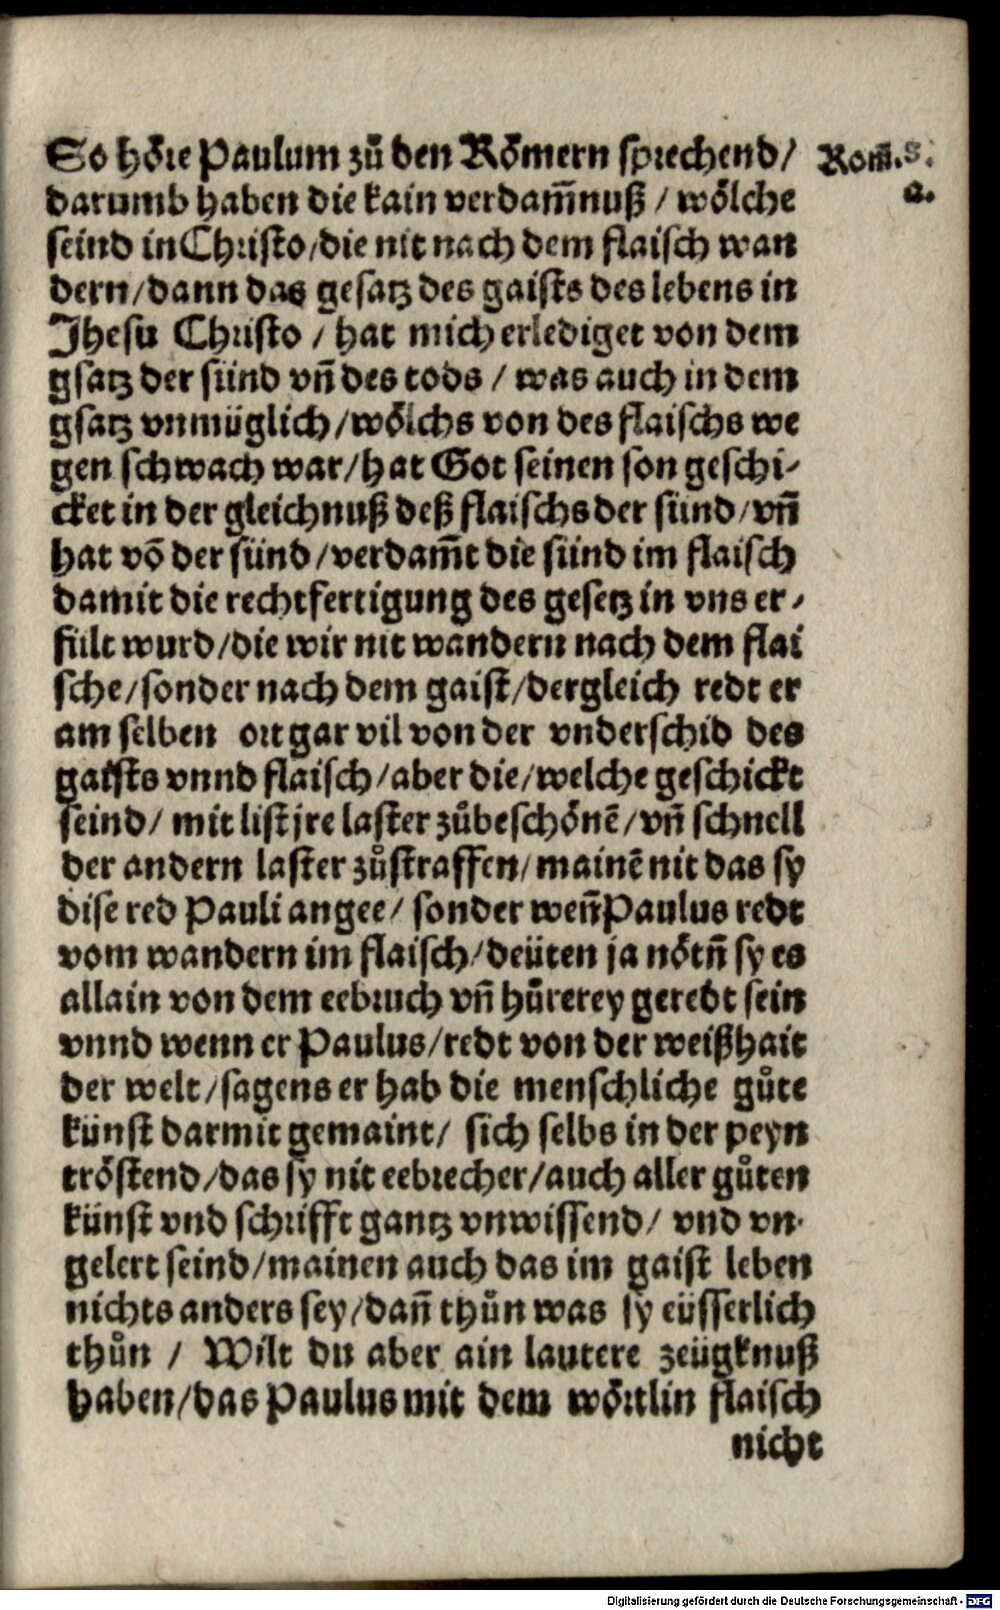 So hőre Paulum zů den Rőmern sprechend/
Rom̃.8.
a.
darumb haben die kain verdam̃nuß / wőlche
seind in Christo/die nit nach dem flaisch wan
dern/dann das gesatz des gaists des lebens in
Jhesu Christo / hat mich erlediget von dem
gsatz der sünd vñ des tods / was auch in dem
gsatz vnmüglich/wőlchs von des flaischs we
gen schwach war/hat Got seinen son geschi⸗
cket in der gleichnuß deß flaischs der sünd/vñ
hat võ der sünd/verdam̃t die sünd im flaisch
damit die rechtfertigung des gesetz in vns er⸗
fült wurd/die wir nit wandern nach dem flai
sche/sonder nach dem gaist/dergleich redt er
am selben ort gar vil von der vnderschid des
gaists vnnd flaisch/aber die/welche geschickt
seind/ mit list jre laster zůbeschőnẽ/vñ schnell
der andern laster zůstraffen/mainẽ nit das sy
dise red Pauli angee/ sonder weñ Paulus redt
vom wandern im flaisch/deüten ja nőtñ sy es
allain von dem eebruch vñ hůrerey geredt sein
vnnd wenn er Paulus/redt von der weißhait
der welt/sagens er hab die menschliche gůte
künst darmit gemaint/ sich selbs in der peyn
trőstend/das sy nit eebrecher/auch aller gůten
künst vnd schrifft gantz vnwissend/ vnd vn⸗
gelert seind/mainen auch das im gaist leben
nichts anders sey/dañ thůn was sy eüsserlich
thůn / Wilt du aber ain lautere zeügknuß
haben/das Paulus mit dem wőrtlin flaisch
nicht
Digitalisierung gefördert durch die Deutsche Forschungsgemeinschaft - DFG